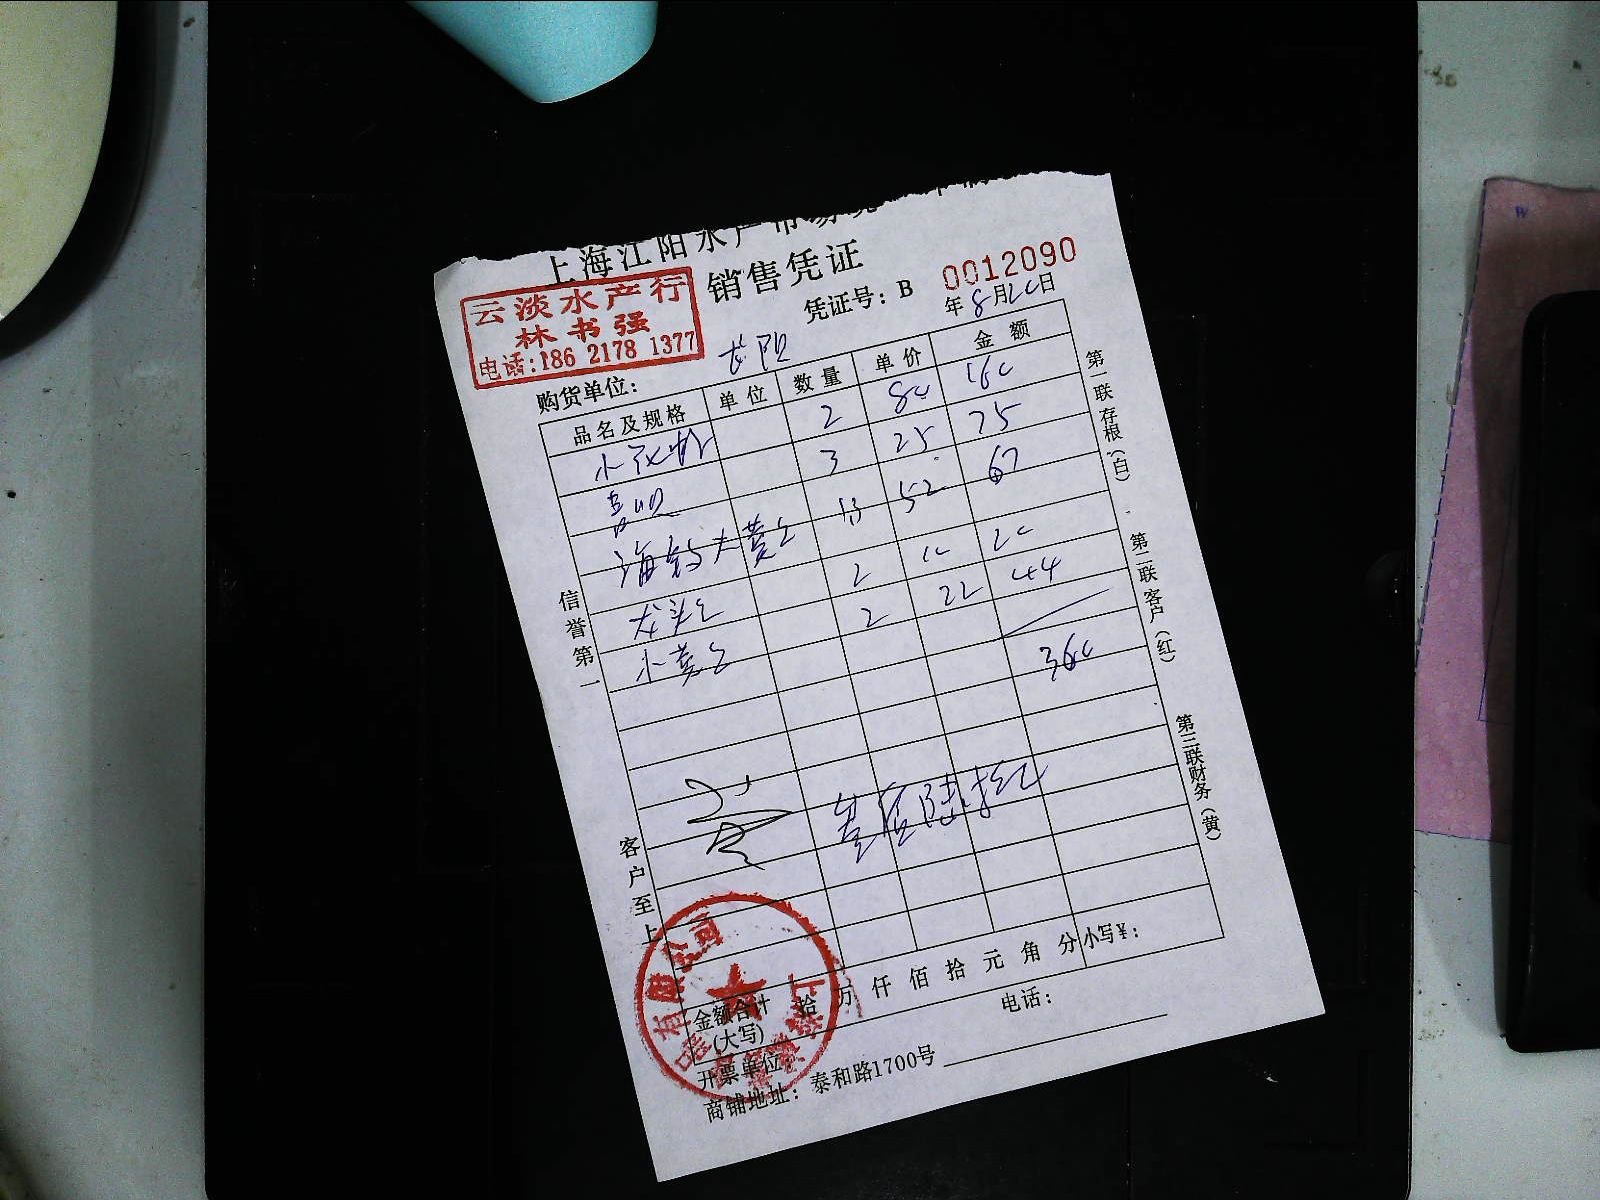 上海江阳水产市场
销售凭证
云淡水产行
林书强
电话:186 2178 1377
凭证号: B 0012090
年8月20日
购货单位: 龙阳
品名及规格 单位 数量 单价 金额
2 80 160
3 25 75
海钓大黄鱼 13 52 67
龙头鱼 2 10 20
小黄鱼 2 22 44
360
叁佰陆拾
金额合计(大写) 拾 万 仟 佰 拾 元 角 分 小写¥:
开票单位: 电话:
商铺地址: 泰和路1700号
信誉第一
客户至上
第一联存根(白)
第二联客户(红)
第三联财务(黄)
有限公司